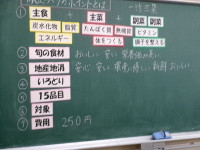 ポイントとは!
一汁三菜
① 主食 + 主菜 + 副菜 副菜
炭水化物 脂質 たんぱく質 無機質 ビタミン
エネルギー 体をつくる 調子を整える
② 旬の食材 おいしい 安い 栄養価が高い
③ 地産地消 安心 安い 環境に優しい 新鮮 おいしい
④ いろどり
⑤ 15品目
⑥
⑦ 費用 250円